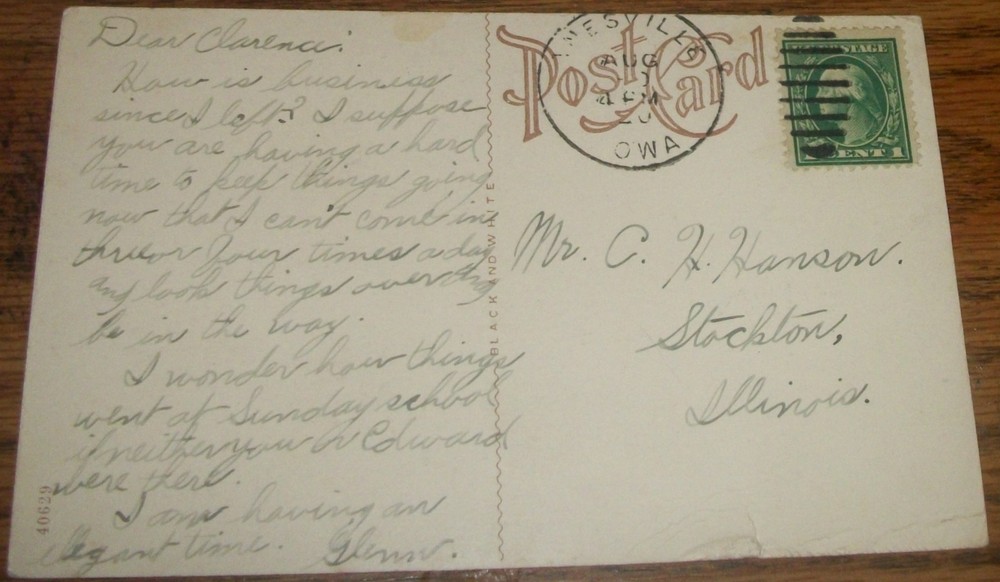 Dear Clarence:
How is business
since I left? I suppose
you are having a hard
time to keep things going
now that I can't come in
three or four times a day
and look things over and
be in the way.
I wonder how things
went at Sunday school
if neither you or Edward
were there.
I am having an
elegant time. Glenn.
40629
BLACK AND WHITE
Post Card
NESVILLE
AUG
4 PM
20
OWA
POSTAGE
CENT 1
Mr. C. H. Hanson.
Stockton,
Illinois.